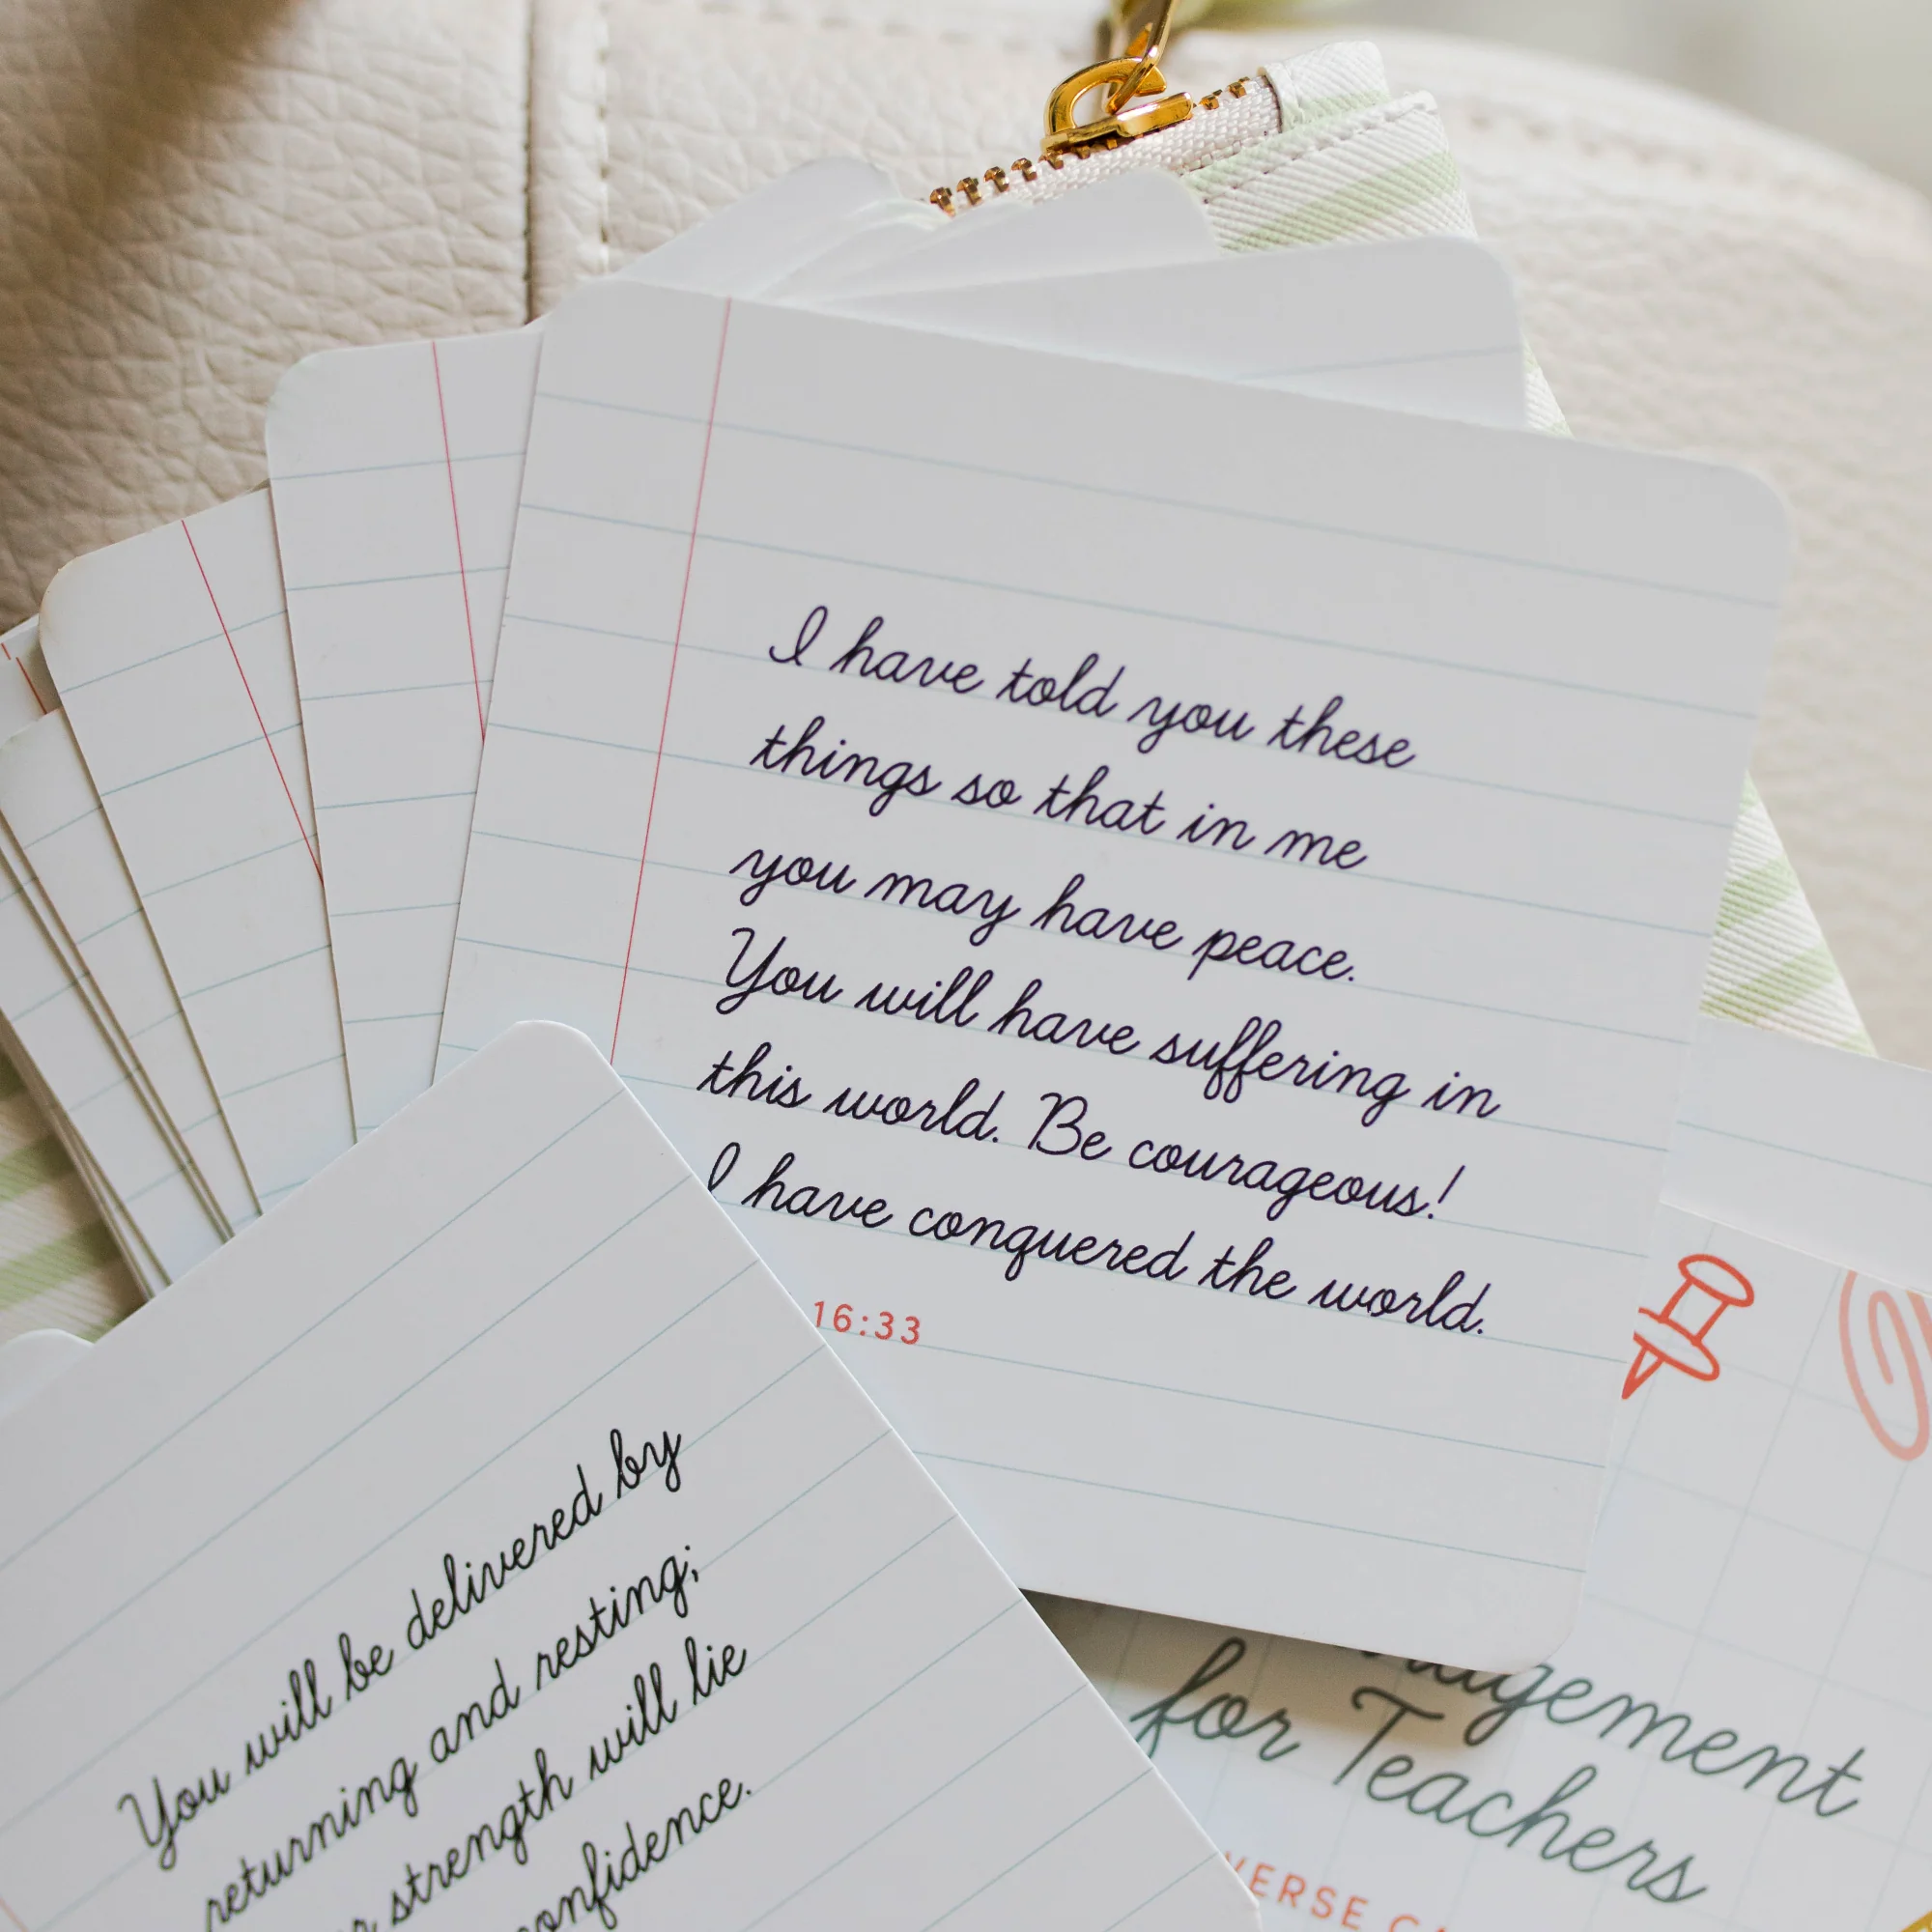 I have told you these
things so that in me
you may have peace.
You will have suffering in
this world. Be courageous!
I have conquered the world.
16:33
You will be delivered by
returning and resting;
strength will lie
confidence.
for Teachers